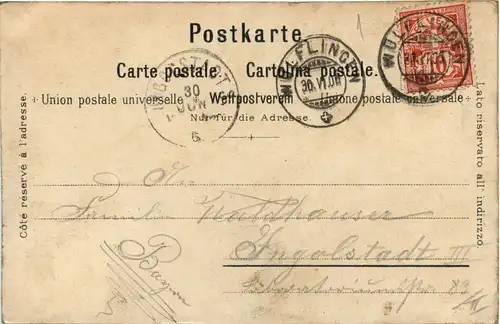 Postkarte
Carte postale. Cartolina postale.
Union postale universelle Weltpostverein Unione postale universale
Nur für die Adresse.
Côté réservé à l'adresse.
Lato riservato all' indirizzo.
WÜLFLINGEN
30.VI.00
WÜLFLINGEN
INGOLSTADT
30
JUN
6
10
An
Familie Waldhauser
Ingolstadt III
83
Bayern